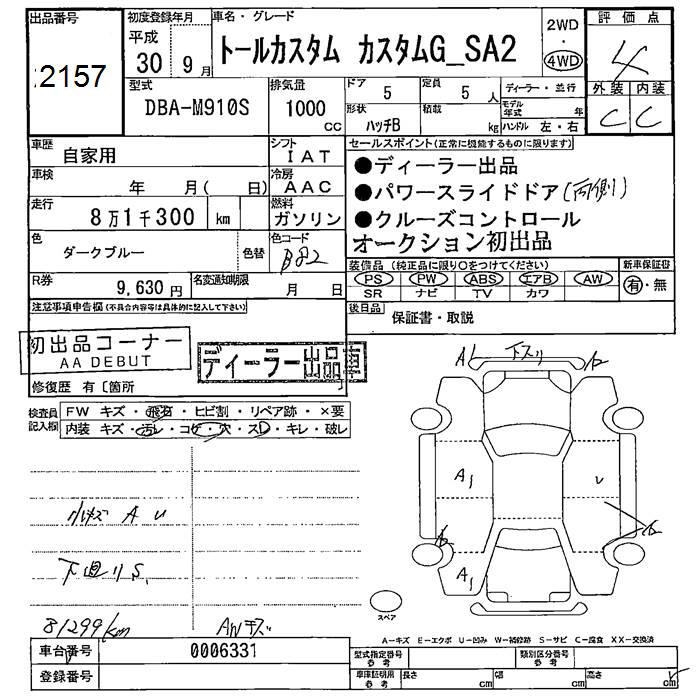 出品番号
2157
初度登録年月
平成
30 9月
車名・グレード
トールカスタム カスタムG_SA2
2WD
・
4WD
評価点
4
外装 内装
C C
型式
DBA-M910S
排気量
1000
CC
ドア
5
定員
5 人
形状
ハッチB
積載
kg
ディーラー・並行
モデル年式 年
ハンドル 左・右
車歴
自家用
シフト
IAT
車検
年 月( 日)
冷房
AAC
走行
8万1千300 km
燃料
ガソリン
色
ダークブルー
色替
色コード
B82
R券
9,630円
名変通知期限
月 日
セールスポイント(正常に機能するものに限ります)
●ディーラー出品
●パワースライドドア(両側)
●クルーズコントロール
オークション初出品
装備品(純正品に限り○をつけてください)
新車保証書
PS PW ABS エアB AW
SR ナビ TV カワ
有・無
後日品
保証書・取説
注意事項申告欄(不具合内容等は具体的に記入して下さい)
初出品コーナー
AA DEBUT
ディーラー出品車
修復歴 有〔箇所 〕
検査員記入欄
FW キズ・飛石・ヒビ割・リペア跡・×要
内装 キズ・汚レ・コゲ・穴・スレ・キレ・破レ
A 下スリ A2
A1 U
A2 A2
A1
小キズ A U
下廻りS
81299km AWキズ
スペア
A-キズ E-エクボ U-凹み W-補修跡 S-サビ C-腐食 XX-交換済
車台番号
0006331
登録番号
型式指定番号
参考
類別区分番号
参考
車庫証明用
参考
長さ cm 幅 cm 高さ cm